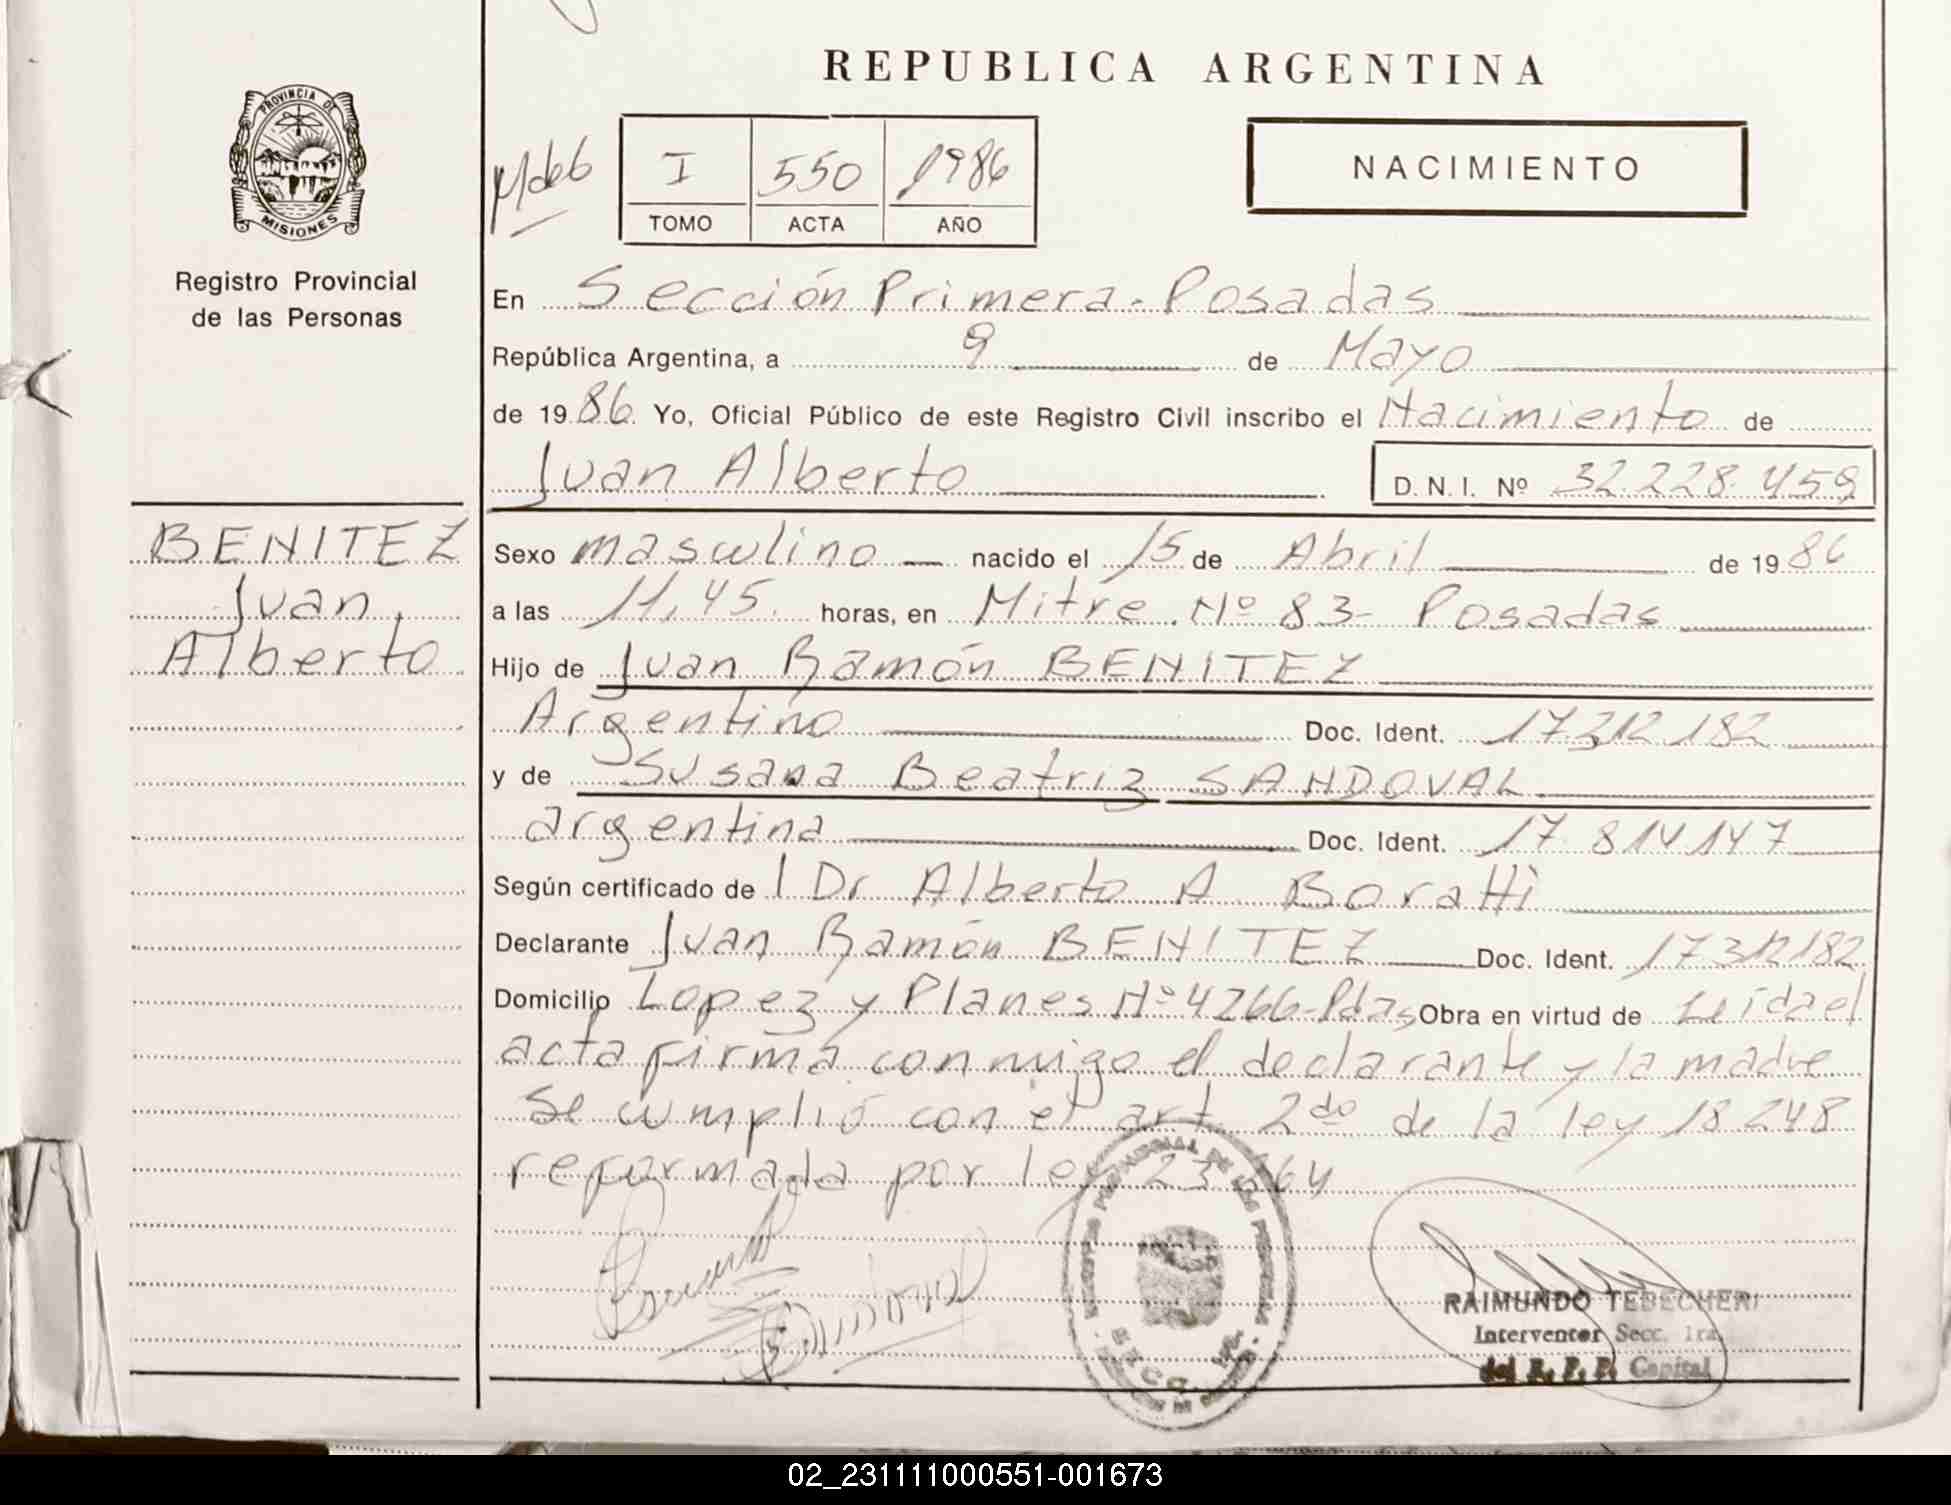 REPUBLICA ARGENTINA
PROVINCIA DE
MISIONES
Registro Provincial
de las Personas
I 550 1986
TOMO ACTA AÑO
NACIMIENTO
En Sección Primera - Posadas
República Argentina, a 9 de Mayo
de 1986 Yo, Oficial Público de este Registro Civil inscribo el Nacimiento de
Juan Alberto D.N.I. Nº 32.228.459
BENITEZ
Juan
Alberto
Sexo masculino nacido el 15 de Abril de 1986
a las 11,45 horas, en Mitre Nº 83 - Posadas
Hijo de Juan Ramón BENITEZ
Argentino Doc. Ident. 17.312.182
y de Susana Beatriz SANDOVAL
argentina Doc. Ident. 17.814.147
Según certificado de l Dr Alberto A Boratti
Declarante Juan Ramón BENITEZ Doc. Ident. 17312182
Domicilio Lopez y Planes Nº 4266-Pdas Obra en virtud de Leída el
acta firma conmigo el declarante y la madre
Se cumplió con el art. 2do de la ley 18248
reformada por ley 23
RAIMUNDO TEBECHERI
Interventor Secc. 1ra.
del R. P. P. Capital
02_231111000551-001673